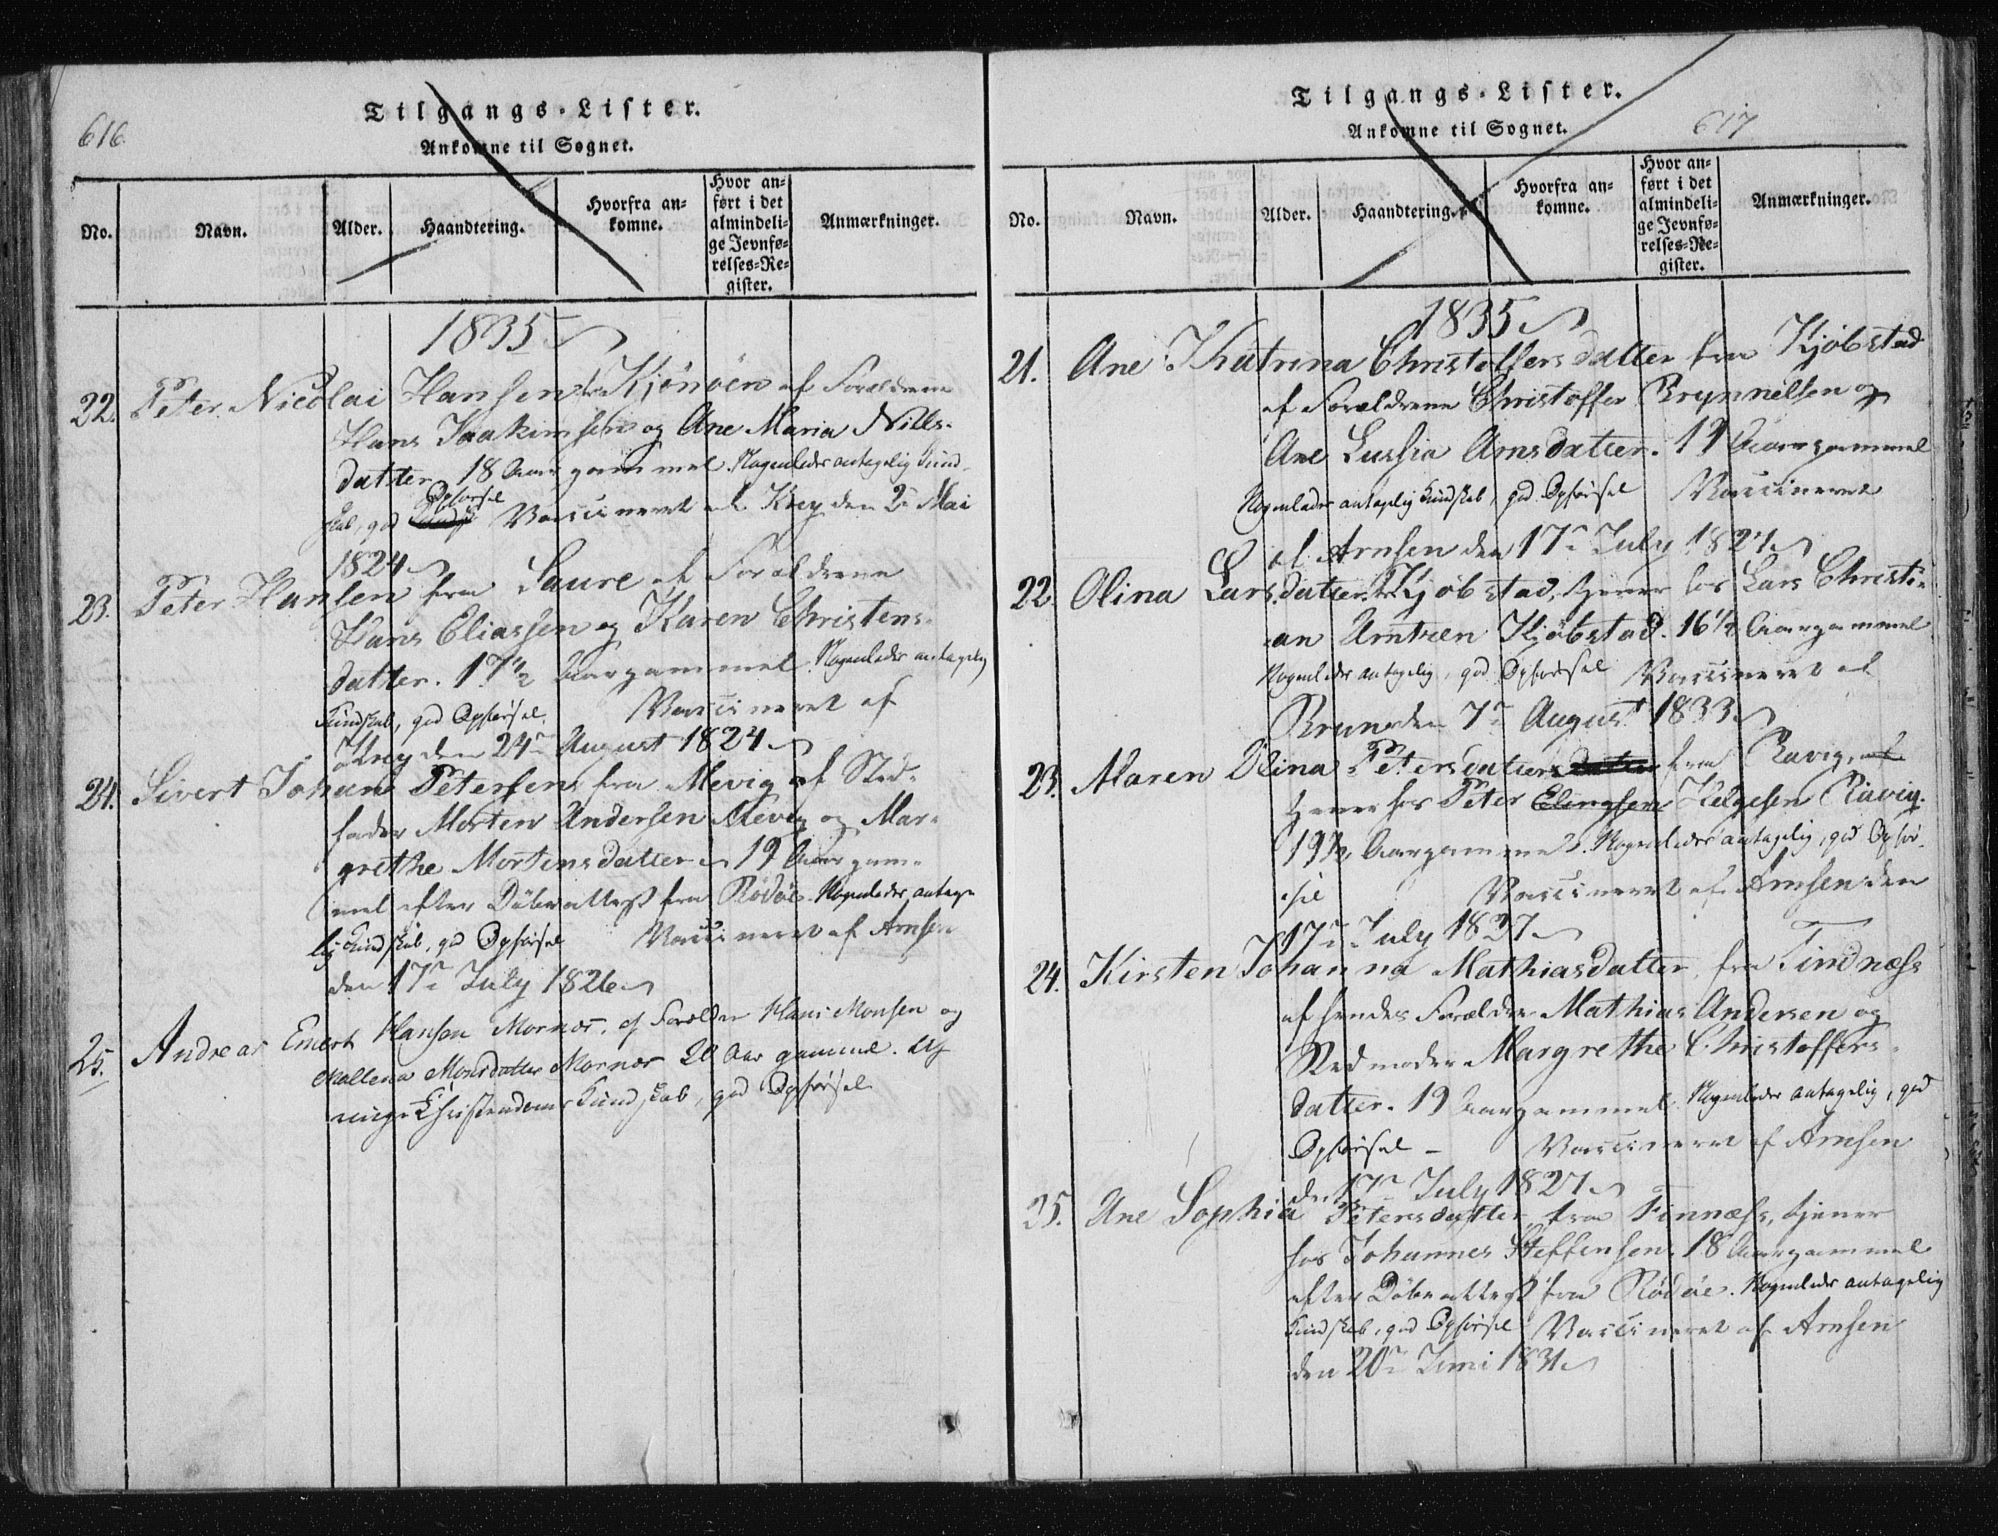 616
Tilgangs-Lister.
Ankomne til Sognet.
No.
Navn.
Alder.
Haandtering.
Hvorfra ankomne.
Hvor anført i det almindelige Jevnførelses-Register.
Anmærkninger.
1835
22. Peter Nicolai Hansen fra Kjönöen af Forældrene
Hans Joakimsen og Ane Maria Nills-
datter 18 Aar gammel. Nogenledes antagelig Kund-
skab, god Opførsel Vaccineret af Krey den 2n Mai
1824
23. Peter Hansen fra Saure af Forældrene
Hans Eliassen og Karen Christens-
datter. 17 1/2 Aar gammel. Nogenledes antagelig
Kundskab, god Opførsel. Vaccineret af
Krey den 24n August 1824
24. Sivert Johan Petersen fra Mevig af Sted-
fader Morten Andersen Mevig og Mar-
grethe Mortensdatter 19 Aar gam-
mel efter Döbeattest fra Rödöe. Nogenledes antage-
lig Kundskab, god Opførsel Vaccineret af Arnsen
den 17n July 1826
25. Andreas Emert Hansen Mornæs. af Forældre Hans Monsen og
Mallena Monsdatter Mornæs 20 Aar gammel. Af
ringe Christendoms Kundskab, god Opførsel
Tilgangs-Lister.
617
Ankomne til Sognet.
No.
Navn.
Alder.
Haandtering.
Hvorfra ankomne.
Hvor anført i det almindelige Jevnførelses-Register.
Anmærkninger.
1835
21. Ane Katrina Christoffersdatter fra Kjöbstad
af Forældrene Christoffer Brynnelsen og
Ane Lussia Arnsdatter. 19 Aar gammel
Nogenledes antagelig Kundskab, god Opførsel Vaccineret
af Arnsen den 17n July 1827
22. Olina Larsdatter fra Kjöbstad, tjener hos Lars Christi-
an Arntzen Kjöbstad. 16 1/2 Aar gammel
Nogenledes antagelig, god Opførsel Vaccineret af
Brun den 7n August 1833
23. Maren Olina Petersdatter datter fra Ravig, af
tjener hos Peter Elingsen Helgesen Ravig.
19 1/2 Aar gammel. Nogenledes antagelig, god Opfør-
sel Vaccineret af Arnsen den
17n July 1827
24. Kirsten Johanna Mathiasdatter fra Tindnæss
af hendes Forældre Mathias Andersen og
Stedmoder Margrethe Christoffers-
datter. 19 Aar gammel Nogenledes antagelig, god
Opførsel – Vaccineret af Arnsen
den 17n July 1827
25. Ane Sophia Petersdatter fra Finnæss, tjener
hos Johannes Steffensen. 18 Aar gammel
efter Döbeattest fra Rödöe. Nogenledes antagelig
Kundskab, god Opførsel Vaccineret af Arnsen
den 20n Juni 1831